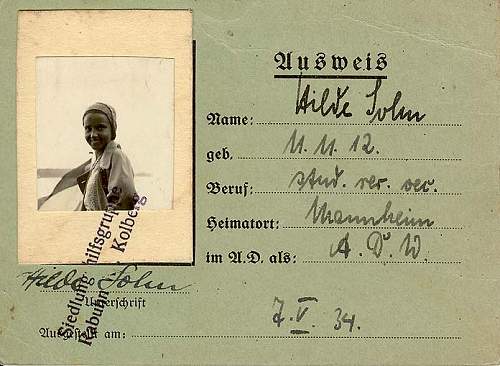 Ausweis
Name: Hilde Sohn
geb. 11. 11. 12.
Beruf: stud. rer. oec.
Heimatort: Mannheim
im A.D. als: A. D. W.
Hilde Sohn
Unterschrift
Siedlungshilfsgruppe
Kolberg
Ausgestellt am: 7. V. 34.